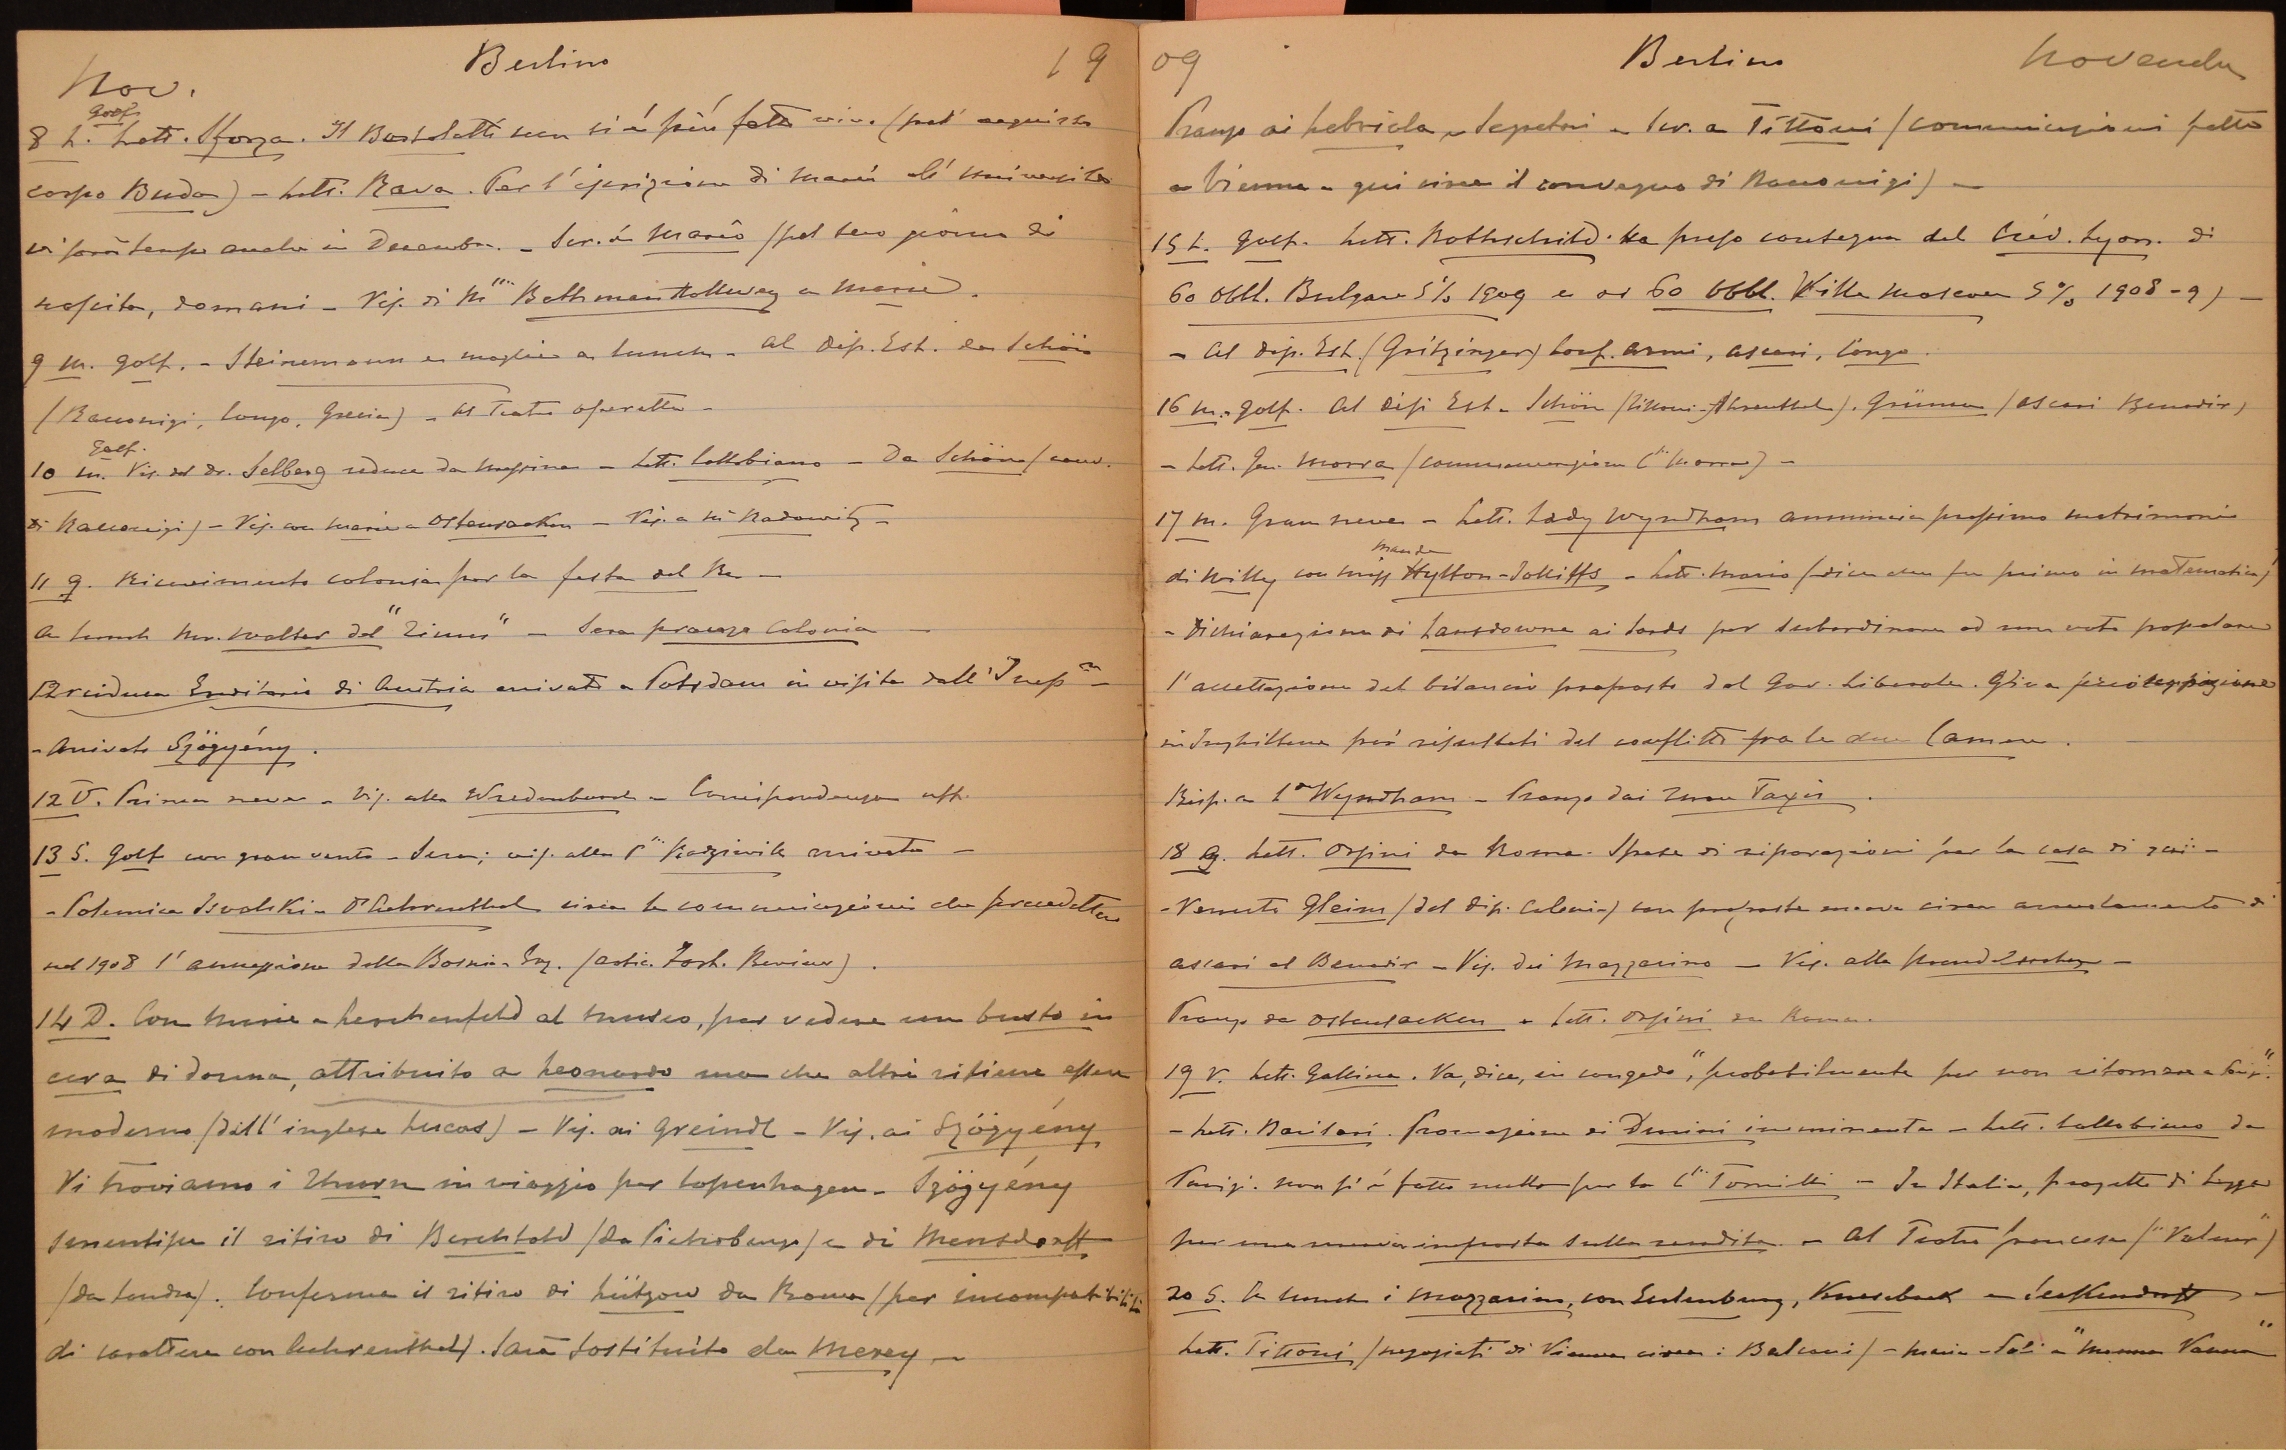 Nov. Berlino 19
golf
8 L. Lett. Sforza. Il Bartoletti non si è più fatto vivo (pel acquisto
corpo Buda) - Lett. Rava. Per l'iscrizione di Mario all' università
vi sarà tempo anche in Decembre. - Scr. a Mario (pel suo giorno di
nascita, domani - Vis. di Me Bethmann Hollweg a Maria.
9 M. golf. - Steinemann e moglie a lunch - Al Dip. Est. da Schön
(Racconigi, Congo, Grecia) - Al Teatro operetta -
golf.
10 m. Vis. del dr. Selberg reduce da Messina - Lett. Collobiano - Da Schön (conv.
di Racconigi) - Vis. con Maria a Ostensacken - Vis. a Me Radowitz -
11 g. Ricevimento colonia per la festa del Re -
A lunch Mr. Walter del "Times" - Sera pranzo Colonia -
Arciduca Ereditario di Austria arrivato a Potsdam in visita dall' Impre -
- Arrivato Szögyény.
12 V. Prima neve - Vis. alla Wredenbruck - Corrispondenza uff.
13 S. Golf con gran vento - Sera; vis. alla Pssa Radziwill arrivata -
- Polemica Isvolski - d'Aehrenthal circa le comunicazioni che precedettero
nel 1908 l'annessione della Bosnia-Erz. (artic. Fort. Review).
14 D. Con Maria e Lerchenfeld al museo, per vedere un busto in
cera di donna, attribuito a Leonardo ma che altri ritiene essere
moderno (dell' inglese Lucas) - Vis. ai Greindl - Vis. ai Szögyény
Vi troviamo i Thurn in viaggio per Copenhagen - Szögyény
smentisce il ritiro di Berchtold (da Pietroburgo) e di Mensdorff
(da Londra). Conferma il ritiro di Lützow da Roma (per incompatibilità
di carattere con Aehrenthal). Sarà sostituito da Merey -
09 Berlino Novembre
Pranzo ai Labriola e Segretari - Scr. a Tittoni (comunicazioni fatte
a Vienna e qui circa il convegno di Racconigi) -
15 L. golf. Lett. Rothschild. Ha preso consegna del Créd. Lyon. di
60 Obbl. Bulgare 5% 1909 e di 60 Obbl. Ville Moscou 5% 1908-9) -
- Al dip. Est. (Gritzinger) conf. armi, ascari, Congo.
16 M. golf. Al dip. Est. Schön (Tittoni-Ährenthal). Grünau (ascari Benadir)
- Lett. Gen. Morra (commemorazione Cssa Morra) -
17 m. Gran neve - Lett. Lady Wyndham annuncia prossimo matrimonio
Maude
di Willy con Miss Hylton-Jolliffs - Lett. Mario (dice che fu primo in matematica)
- Dichiarazione di Lansdowne ai Lords per subordinare ad un voto popolare
l'accettazione del bilancio proposto dal Gov. Liberale. Gli è a
in Inghilterra per risultati del conflitto fra le due Camere.
Risp. a La Wyndham - Pranzo dai Thurn Taxis.
18 g. Lett. Orsini da Roma. Spese di riparazioni per la casa di
- Venuto Gleim (del dip. Colonie) con proposte nuove circa arruolamento di
ascari al Benadir - Vis. dei Mazzarino - Vis. alla Mendelssohn -
Pranzo da Ostensacken - Lett. Orsini da Roma.
19 V. Lett. Gallina. Va, dice, in congedo "probabilmente per non ritornare a Parigi".
- Lett. Barilari. Promozione di Dmini imminente - Lett. Collobiano da
Parigi. Non si è fatto nulla per la Cssa Tornielli - In Italia, progetto di legge
per una nuova imposta sulla rendita. - Al Teatro francese ("Voleur")
20 S. A lunch i Mazzarino, con Eulenburg, Knesebeck e Seckendorff -
Lett. Tittoni (negoziati di Vienna circa i Balcani) - "Monna Vanna"